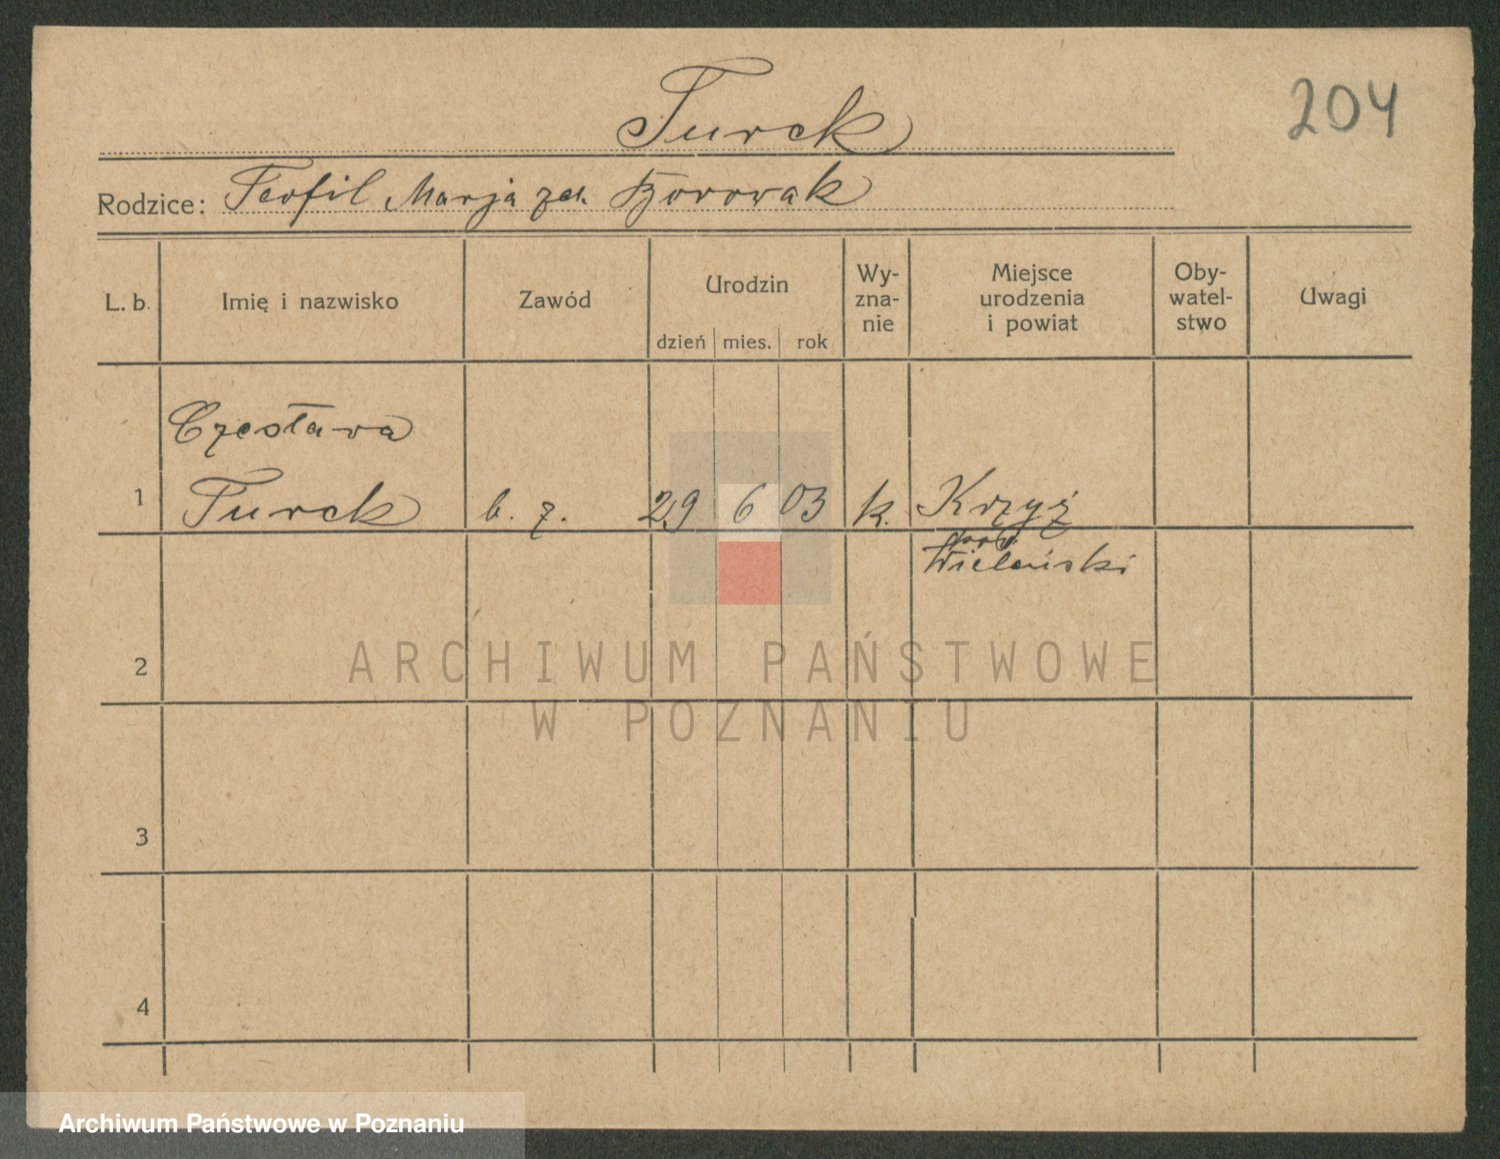 204
Turek
Rodzice: Teofil Marja zd. Borowak
L. b. Imię i nazwisko Zawód Urodzin dzień mies. rok Wy-zna-nie Miejsce urodzenia i powiat Oby-watel-stwo Uwagi
Czesława
1 Turek b. z. 29 6 03 k. Krzyż
pow.
Wieleński
2
3
4
ARCHIWUM PAŃSTWOWE
W POZNANIU
Archiwum Państwowe w Poznaniu